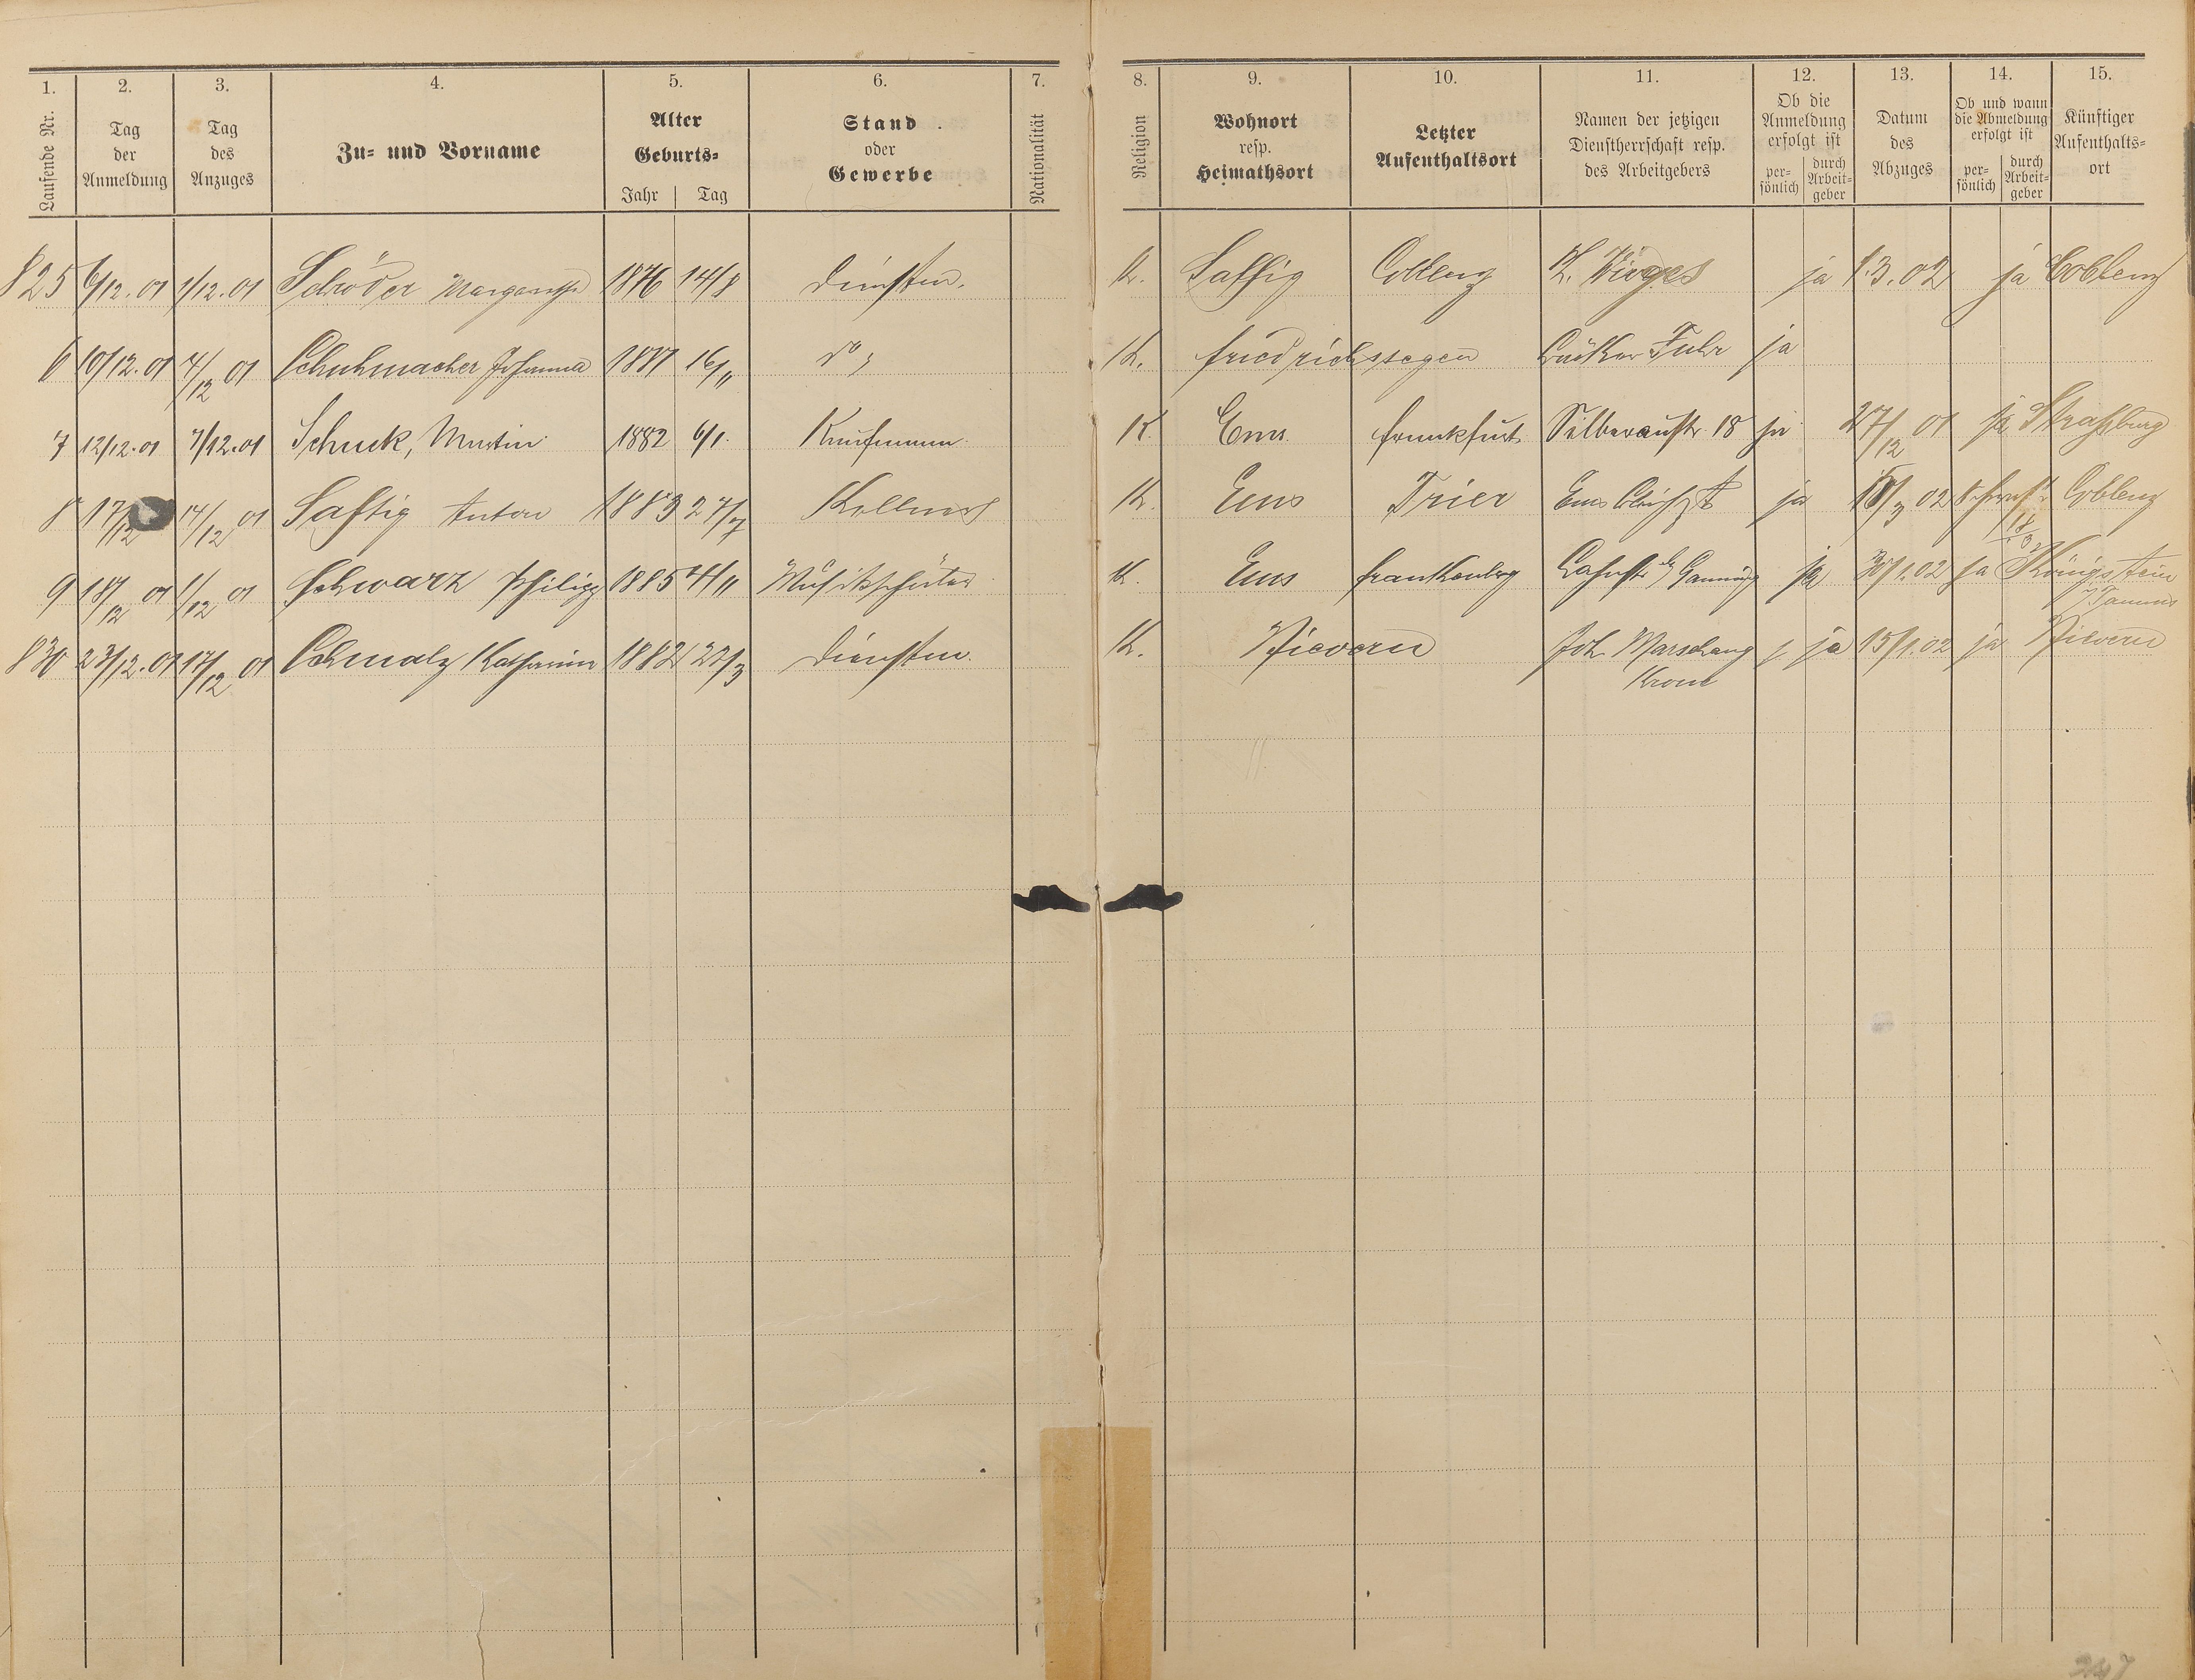 1. 2. 3. 4. 5. 6. 7. 8. 9. 10. 11. 12. 13. 14. 15.
Laufende Nr. Tag der Anmeldung Tag des Anzuges Zu- und Vorname Alter Geburts- Jahr Tag Stand oder Gewerbe Nationalität Religion Wohnort resp. Heimathsort Letzter Aufenthaltsort Namen der jetzigen Dienstherrschaft resp. des Arbeitgebers Ob die Anmeldung erfolgt ist persönlich durch Arbeitgeber Datum des Abzuges Ob und wann die Abmeldung erfolgt ist persönlich durch Arbeitgeber Künftiger Aufenthaltsort
825 6/12.01 1/12.01 Schröder Margarethe 1876 14/8 Dienstm. K. Saffig Coblenz ja 1.3.02 ja Coblenz
6 10/12.01 4/12 01 Schuhmacher Johanna 1887 16/11 do K. Friedrichssegen Fuhr ja
7 12/12.01 7/12.01 Schuck, Martin 1882 6/1. Kaufmann K. Ems Frankfurt Silberaustr 18 ja 27/12 01 ja Straßburg
8 17/12 14/12 01 Saftig Anton 1883 27/7 Kellner K. Ems Trier Ems ja 18/3 02 Coblenz
18/3
9 18/12 01 1/12 01 Schwarz Philipp 1885 4/11 Musikschüler K. Ems Frankenberg ja 30/1.02 ja Königstein
Taunus
830 23/12.01 17/12 01 Schmalz Katharina 1882 22/3 Dienstm. K. Nievern Joh. Marschang ja 15/1.02 ja Nievern
Krone
247